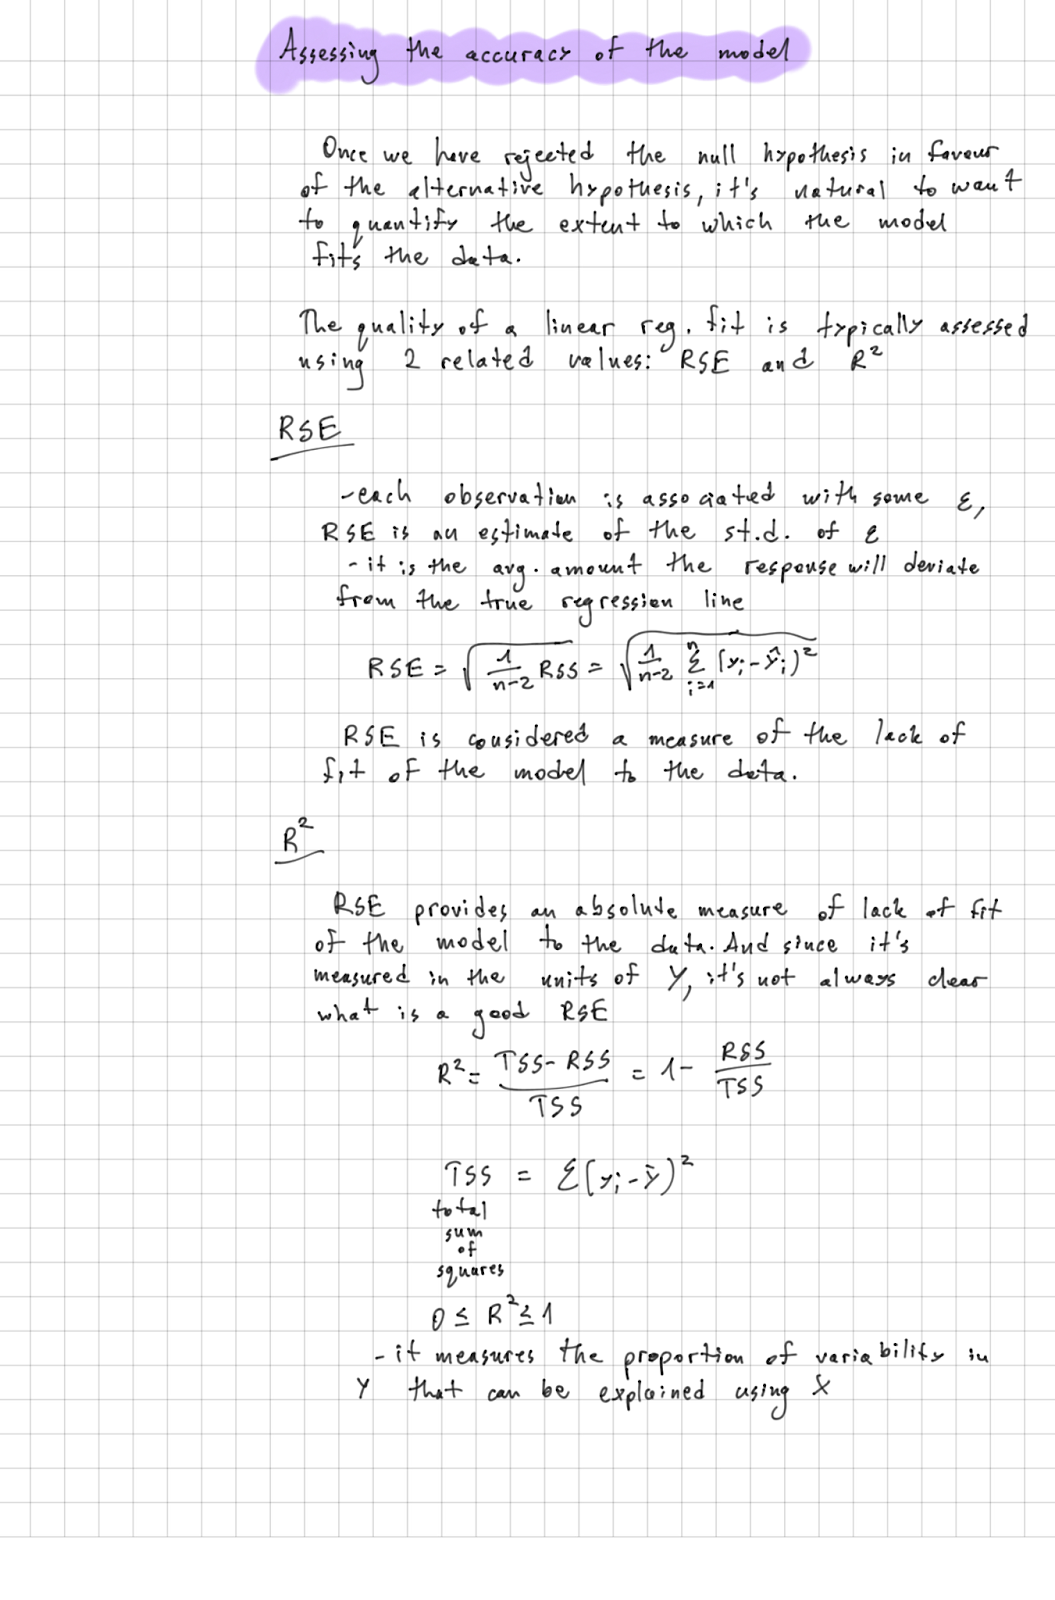 Assessing the accuracy of the model
Once we have rejected the null hypothesis in favour
of the alternative hypothesis, it's natural to want
to quantify the extent to which the model
fits the data.
The quality of a linear reg. fit is typically assessed
using 2 related values: RSE and R²
RSE
-each observation is associated with some ε,
RSE is an estimate of the st.d. of ε
- it is the avg. amount the response will deviate
from the true regression line
RSE = √(1/(n-2) RSS) = √(1/(n-2) Σ_{i=1}^{n} (yᵢ-ŷᵢ)²)
RSE is considered a measure of the lack of
fit of the model to the data.
R²
RSE provides an absolute measure of lack of fit
of the model to the data. And since it's
measured in the units of Y, it's not always clear
what is a good RSE
R² = (TSS - RSS)/TSS = 1 - RSS/TSS
TSS = Σ(yᵢ-ȳ)²
total
sum
of
squares
0 ≤ R² ≤ 1
- it measures the proportion of variability in
Y that can be explained using X